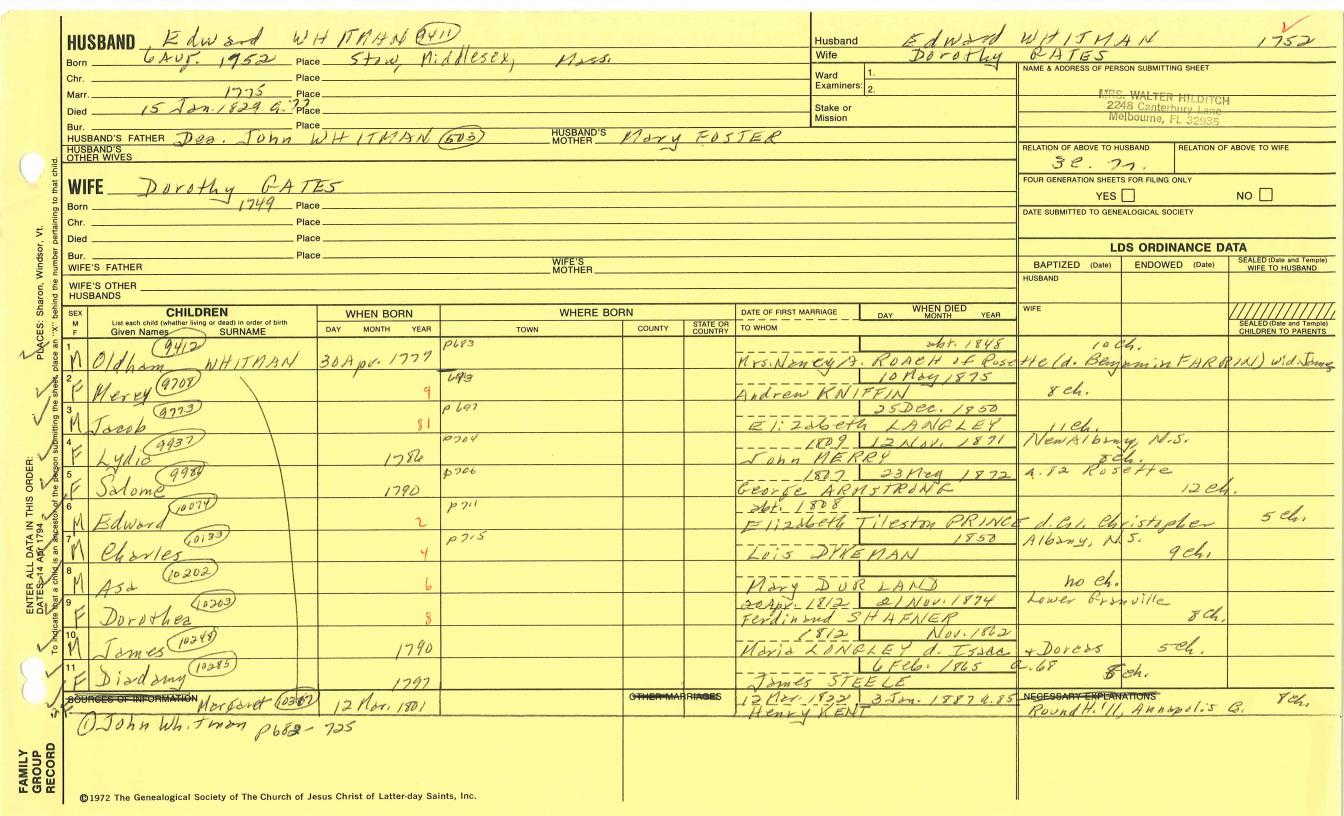 HUSBAND Edward WHITMAN 9411
Born 6 Aug. 1952 Place Stow, Middlesex, Mass.
Chr. Place
Marr. 1775 Place
Died 15 Jan. 1829 a. 77 Place
Bur. Place
HUSBAND'S FATHER Dea. John WHITMAN 603 HUSBAND'S MOTHER Mary FOSTER
HUSBAND'S OTHER WIVES
WIFE Dorothy GATES
Born 1749 Place
Chr. Place
Died Place
Bur. Place
WIFE'S FATHER WIFE'S MOTHER
WIFE'S OTHER HUSBANDS
Husband Edward WHITMAN 1752
Wife Dorothy GATES
Ward Examiners: 1.
2.
Stake or Mission
NAME & ADDRESS OF PERSON SUBMITTING SHEET
MRS. WALTER HILDITCH
2248 Canterbury Lane
Melbourne, FL 32935
RELATION OF ABOVE TO HUSBAND RELATION OF ABOVE TO WIFE
3c. 7r.
FOUR GENERATION SHEETS FOR FILING ONLY
YES NO
DATE SUBMITTED TO GENEALOGICAL SOCIETY
LDS ORDINANCE DATA
BAPTIZED (Date) ENDOWED (Date) SEALED (Date and Temple) WIFE TO HUSBAND
HUSBAND
WIFE
SEALED (Date and Temple) CHILDREN TO PARENTS
SEX M F CHILDREN WHEN BORN WHERE BORN DATE OF FIRST MARRIAGE WHEN DIED
List each child (whether living or dead) in order of birth
Given Names SURNAME DAY MONTH YEAR TOWN COUNTY STATE OR COUNTRY TO WHOM DAY MONTH YEAR
1 9412 p683 abt. 1848 10 ch.
M Oldham WHITMAN 30 Apr. 1777 Mrs. Nancy A. ROACH of Rosette (d. Benjamin FARRIN) wid. James
2 9708 693 10 May 1875
F Mercy 9 Andrew KNIFFIN 8 ch.
3 9773 p697 25 Dec. 1850
M Jacob 81 Elizabeth LANGLEY 11 ch.
4 9937 p704 1809 12 Nov. 1871 New Albany, N.S.
F Lydia 1786 John MERRY 8 ch.
5 p706 1807 23 May 1872 a. 82 Rosette
F Salome 1790 George ARMSTRONG 12 ch.
6 10074 p711 abt. 1808
M Edward 2 Elizabeth Tileston PRINCE d. Christopher 5 ch.
7 10133 p715 1850 Albany, N.S.
M Charles 4 Lois DYKEMAN 9 ch.
8 10202
M Asa 6 Mary DURLAND no ch.
9 10203 20 Apr. 1812 21 Nov. 1874 Lower Granville
F Dorothea 8 Ferdinand SHAFNER 8 ch.
10 10248 1812 Nov. 1862
M James 1790 Maria LONGLEY d. Isaac & Dorcas 5 ch.
11 10285 6 Feb. 1865 a. 68
F Diadamy 1797 James STEELE 8 ch.
SOURCES OF INFORMATION Margaret 12 Mar. 1801 OTHER MARRIAGES 12 Mar. 1822 3 Jan. 1887 a. 85 NECESSARY EXPLANATIONS 8 ch.
Henry KENT Round Hill, Annapolis Co.
① John Whitman p682-725
©1972 The Genealogical Society of The Church of Jesus Christ of Latter-day Saints, Inc.
FAMILY GROUP RECORD
ENTER ALL DATA IN THIS ORDER:
DATES: 14 Apr 1794 PLACES: Sharon, Windsor, Vt.
To indicate that a child is an ancestor of the person submitting the sheet, place an "X" behind the number pertaining to that child.